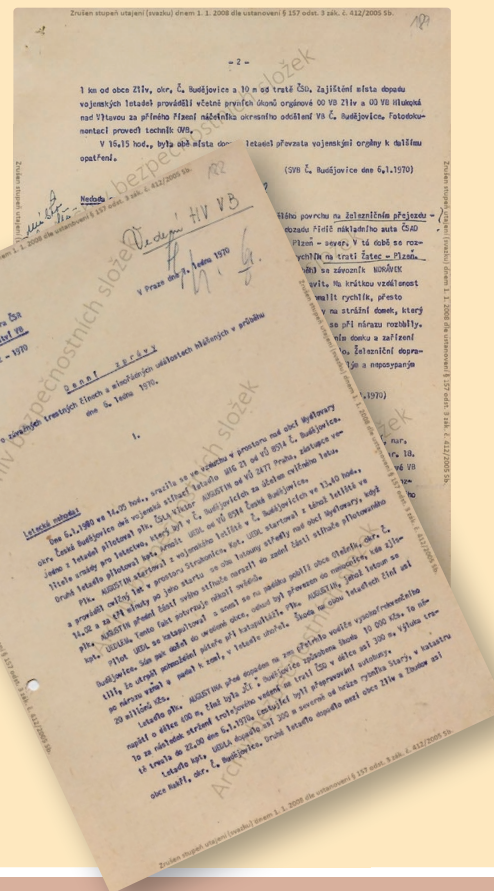 Zrušen stupeň utajení (svazku) dnem 1. 1. 2008 dle ustanovení § 157 odst. 3 zák. č. 412/2005 Sb.
189
- 2 -
1 km od obce Zliv, okr. Č. Budějovice a 10 m od tratě ČSD. Zajištění místa dopadu
vojenských letadel prováděli včetně prvních úkonů orgánové OO VB Zliv a OO VB Hluboká
nad Vltavou za přímého řízení náčelníka okresního oddělení VB Č. Budějovice. Fotodoku-
mentaci provedl technik OVB.
V 16.15 hod., byla obě místa letadel převzata vojenskými orgány k dalšímu
opatření.
(SVB Č. Budějovice dne 6.1.1970)
Nedoda
povrchu na železničním přejezdu -
dozadu řidič nákladního auta ČSAD
Plzeň - sever. V té době se roz-
rychlík na trati Žatec - Plzeň.
běhl se závozník MORÁVEK
Na krátkou vzdálenost
rychlík, přesto
na strážní domek, který
se při nárazu rozbbily.
domku a zařízení
Železniční dopra-
a neposypaným
1970)
nar.
18.
VB
Zrušen stupeň utajení (svazku) dnem 1. 1. 2008 dle ustanovení § 157 odst. 3 zák. č. 412/2005 Sb.
182
Vedení HIV VB
V Praze dne 7. ledna 1970
ČSR
VB
- 1970
Denní zprávy
o závažných trestných činech a mimořádných událostech hlášených v průběhu
dne 6. ledna 1970.
1.
Letecká nehoda:
Dne 6.1.1980 ve 14.05 hod., srazila se ve vzduchu v prostoru nad obcí Mydlovary
okr. České Budějovice dvě vojenská stíhací letadla MIG 21 od VÚ 8514 Č. Budějovice.
Jedno z letadel pilotoval plk. Viktor AUGUSTIN od VÚ 2477 Praha, zástupce ve-
litele vzdušných pro letectvo, který byl v Č. Budějovicích za účelem cvičného letu.
Druhé letadlo pilotoval kpt. UEDL od VÚ 8514 České Budějovice.
Plk. AUGUSTIN startoval z vojenského letiště v Č. Budějovicích ve 13.40 hod.,
a prováděl cvičný let v prostoru Strakonice. Kpt. UEDL startoval z téhož letiště ve
14.02 a za čtyři minuty po jeho startu se oba letouny střetly nad obcí Mydlovary, když
plk. AUGUSTIN přední částí svého stíhače narazil do zadní části stíhače pilotovaného
kpt. UEDLEM. Tento fakt potvrzuje několik svědků.
Pilot UEDL se katapultoval a snesl se na padáku poblíž obce Olešník, okr. Č.
Budějovice. Sám pak došel do uvedené obce, odkud byl převezen do nemocnice, kde zjis-
tili, že utrpěl pohmoždění páteře při katapultáži. Plk. AUGUSTINA tehož letoun se
po nárazu vzňal a padal k zemi, v letadle uhořel. Škoda na obou letadlech činí asi
20 miliónů Kčs.
Letadlo plk. AUGUSTINA před dopadem na zem přetrhlo vodiče vysokofrekvenčního
napětí o délce 400 m, čímž byla JČE Č. Budějovice způsobena škoda 10 000 Kčs. To mě-
lo za následek stržení trolejového vedení na trati ČSD v délce asi 300 m. Výluka tra-
tě trvala do 22.00 dne 6.1.1970. Cestující byli přepravováni autobusy.
Letadlo kpt. UEDLA dopadlo asi 300 m severně od hráze rybníka Starý, v katastru
obce Nakří, okr. Č. Budějovice. Druhé letadlo dopadlo mezi obce Zliv a Zbudov asi
Archiv bezpečnostních složek
Zrušen stupeň utajení (svazku) dnem 1. 1. 2008 dle ustanovení § 157 odst. 3 zák. č. 412/2005 Sb.